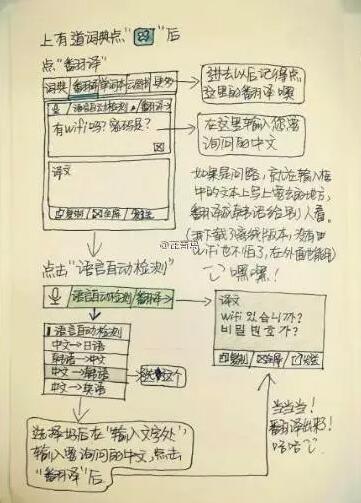 上有道词典点“ ”后
点“翻译”
词典 翻译 单词本 云图书
进去以后记得点
这里的翻译噢
语言自动检测 翻译
有wifi吗?密码是?
在这里输入你要
询问的中文
译文
复制 全屏
如果是问路,就在输入框
中的文本上写上要去的地方,
翻译成韩语给别人看。
也不怕了,在外面也能用)
嘿嘿!
点击“语言自动检测”
语言自动检测 翻译
语言自动检测
中文→日语
韩语→中文
中文→韩语
中文→英语
这个
译文
wifi 있습니까?
비밀 번호가?
复制 全屏
选择好后在“输入文字处”
输入要询问的中文,点击
“翻译”后
当当当!
翻译出来了!
哈哈